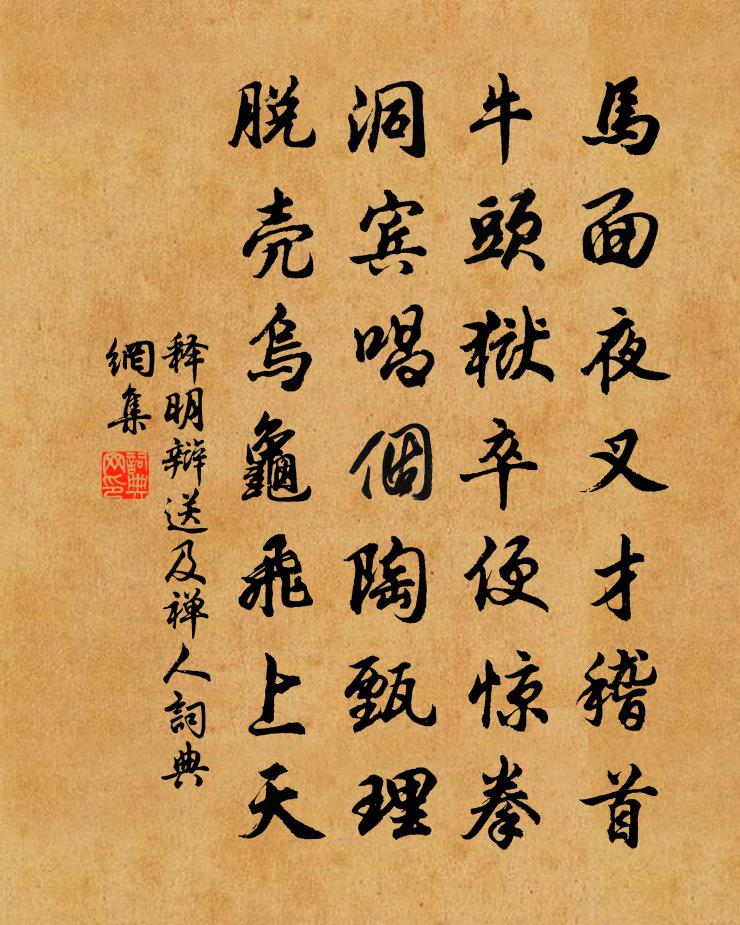 馬面夜叉才稽首
牛頭獄卒便惊拳
洞宾唱個陶甄理
脱壳烏龜飛上天
释明辩送及禅人詞典
網集
詞典
网印